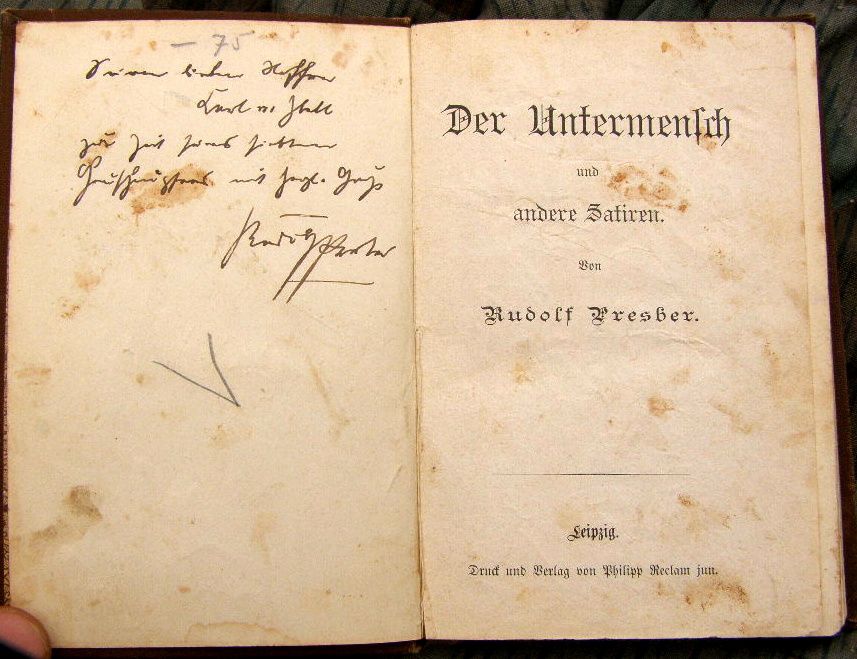 — 75
Seinem lieben Neffen
Karl v.
zur Zeit seines siebten
mit herzl. Gruß
Rudolf Presber
Der Untermensch
und
andere Satiren.
Von
Rudolf Presber.
Leipzig.
Druck und Verlag von Philipp Reclam jun.